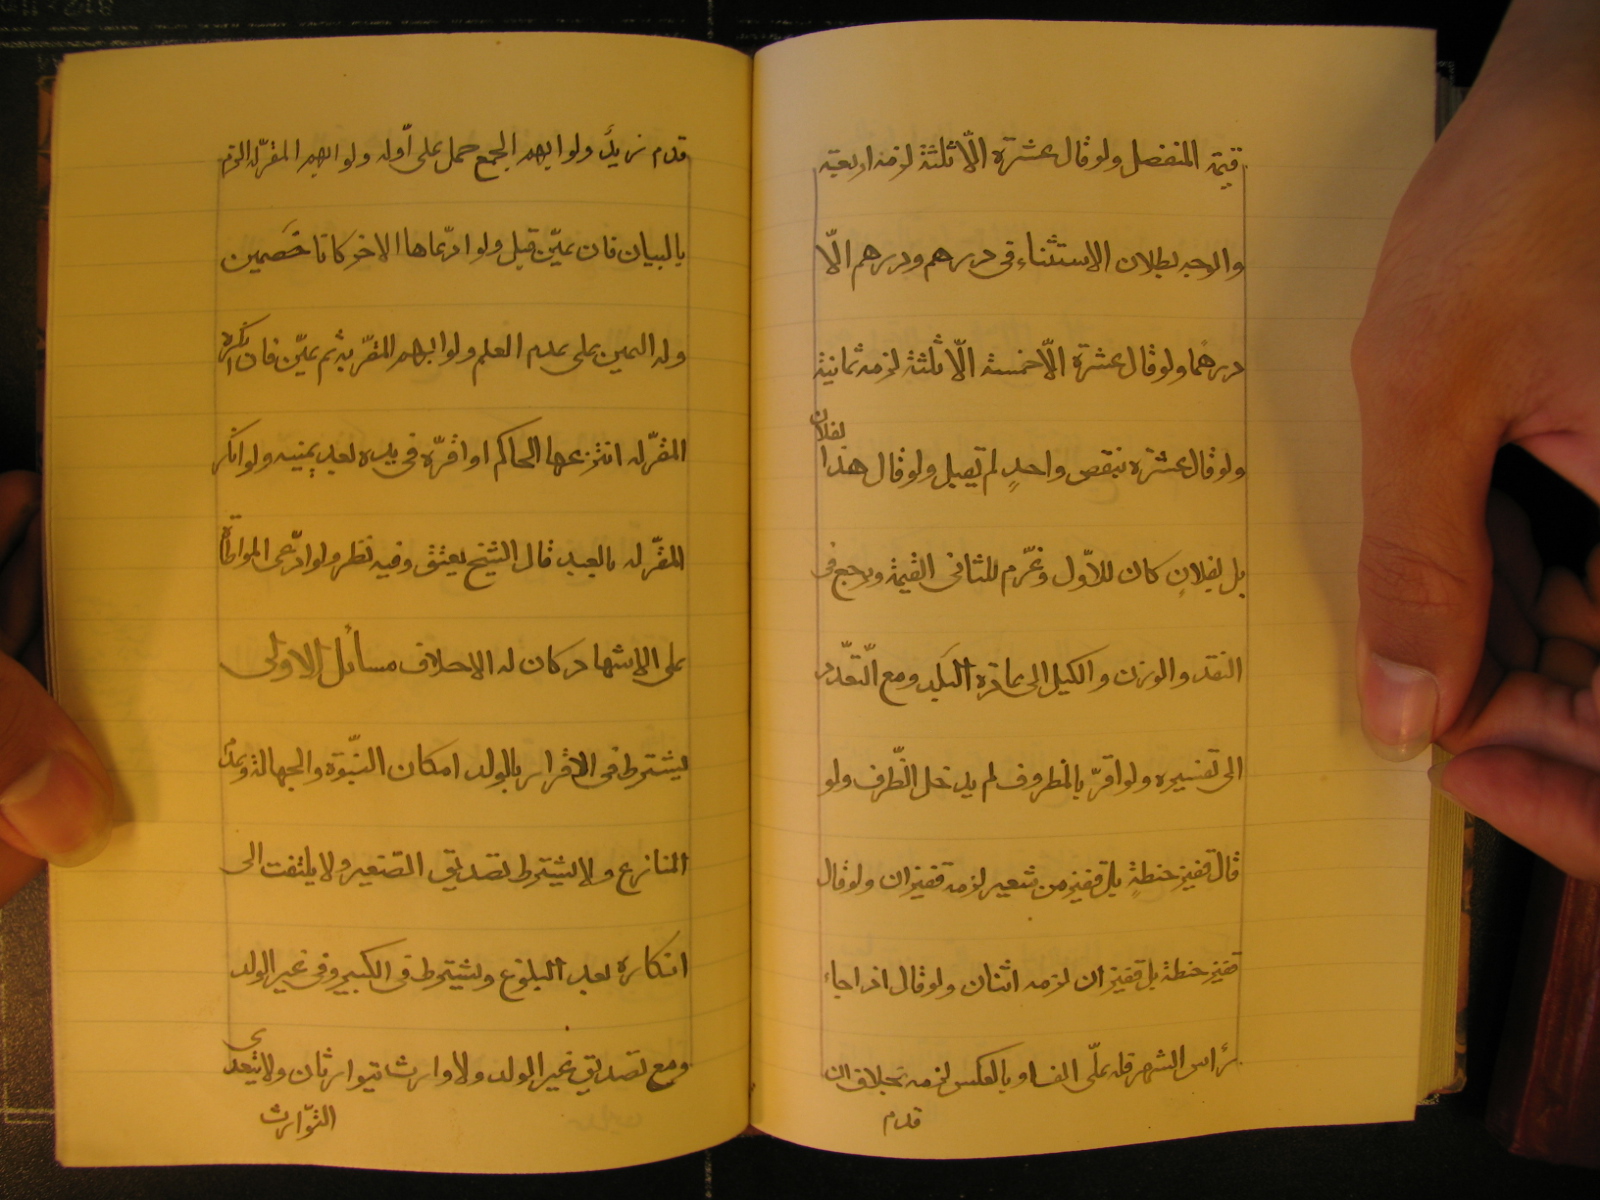 قيمة المنفصل ولو قال عشرة الّا ثلثة لزمه اربعة
والوجه بطلان الاستثناء في درهم ودرهم الّا
درهما ولو قال عشرة الّا خمسة الّا ثلثة لزمه ثمانية
ولو قال عشرة ينقص واحدٍ لم يقبل ولو قال هذا لفلان
بل لفلانٍ كان للاّول وغّرم للثاني القيمة ويرجع في
النقد والوزن والكيل الى عادة البلد ومع التّعدّد
الى تفسيره ولو اقرّ بالمظروف لم يدخل الظّرف ولو
قال قفيز حنطةٍ بل قفيز من شعير لزمه قفيزان ولو قال
قفيز حنطة بل قفيزان لزمه اثنان ولو قال اذا جاء
رأس الشهر فله علّى الف او بالعكس لزمه بخلاف ان
قدم
قدم زيدٌ ولو ابهم الجمع حمل على اّوله ولو ابهم المقرّ له الزم
بالبيان فان عيّن قبل ولو ادّعاها الاخر كانا خَصمين
وله اليمين على عدم العلم ولو ابهم المقرّ به ثم عيّن فان انكره
المقرّ له انتزعها الحاكم او اقرّه في يده بعد يمينه ولو انكر
المقرّ له بالعبد قال الشيخ يعتق وفيه نظر ولو ادّعى المواطأة
على الاشهاد كان له الاحلاف مسائل الاولى
يشترط في الاقرار بالولد امكان البنّوة والجهالة وعدم
المنازع ولا يشترط تصديق الصغير ولا يلتفت الى
انكاره بعد البلوغ ويشترط في الكبير وفي غير الولد
ومع تصديق غير الولد ولا وارث يتوارثان ولا يتعدى
التّوارث